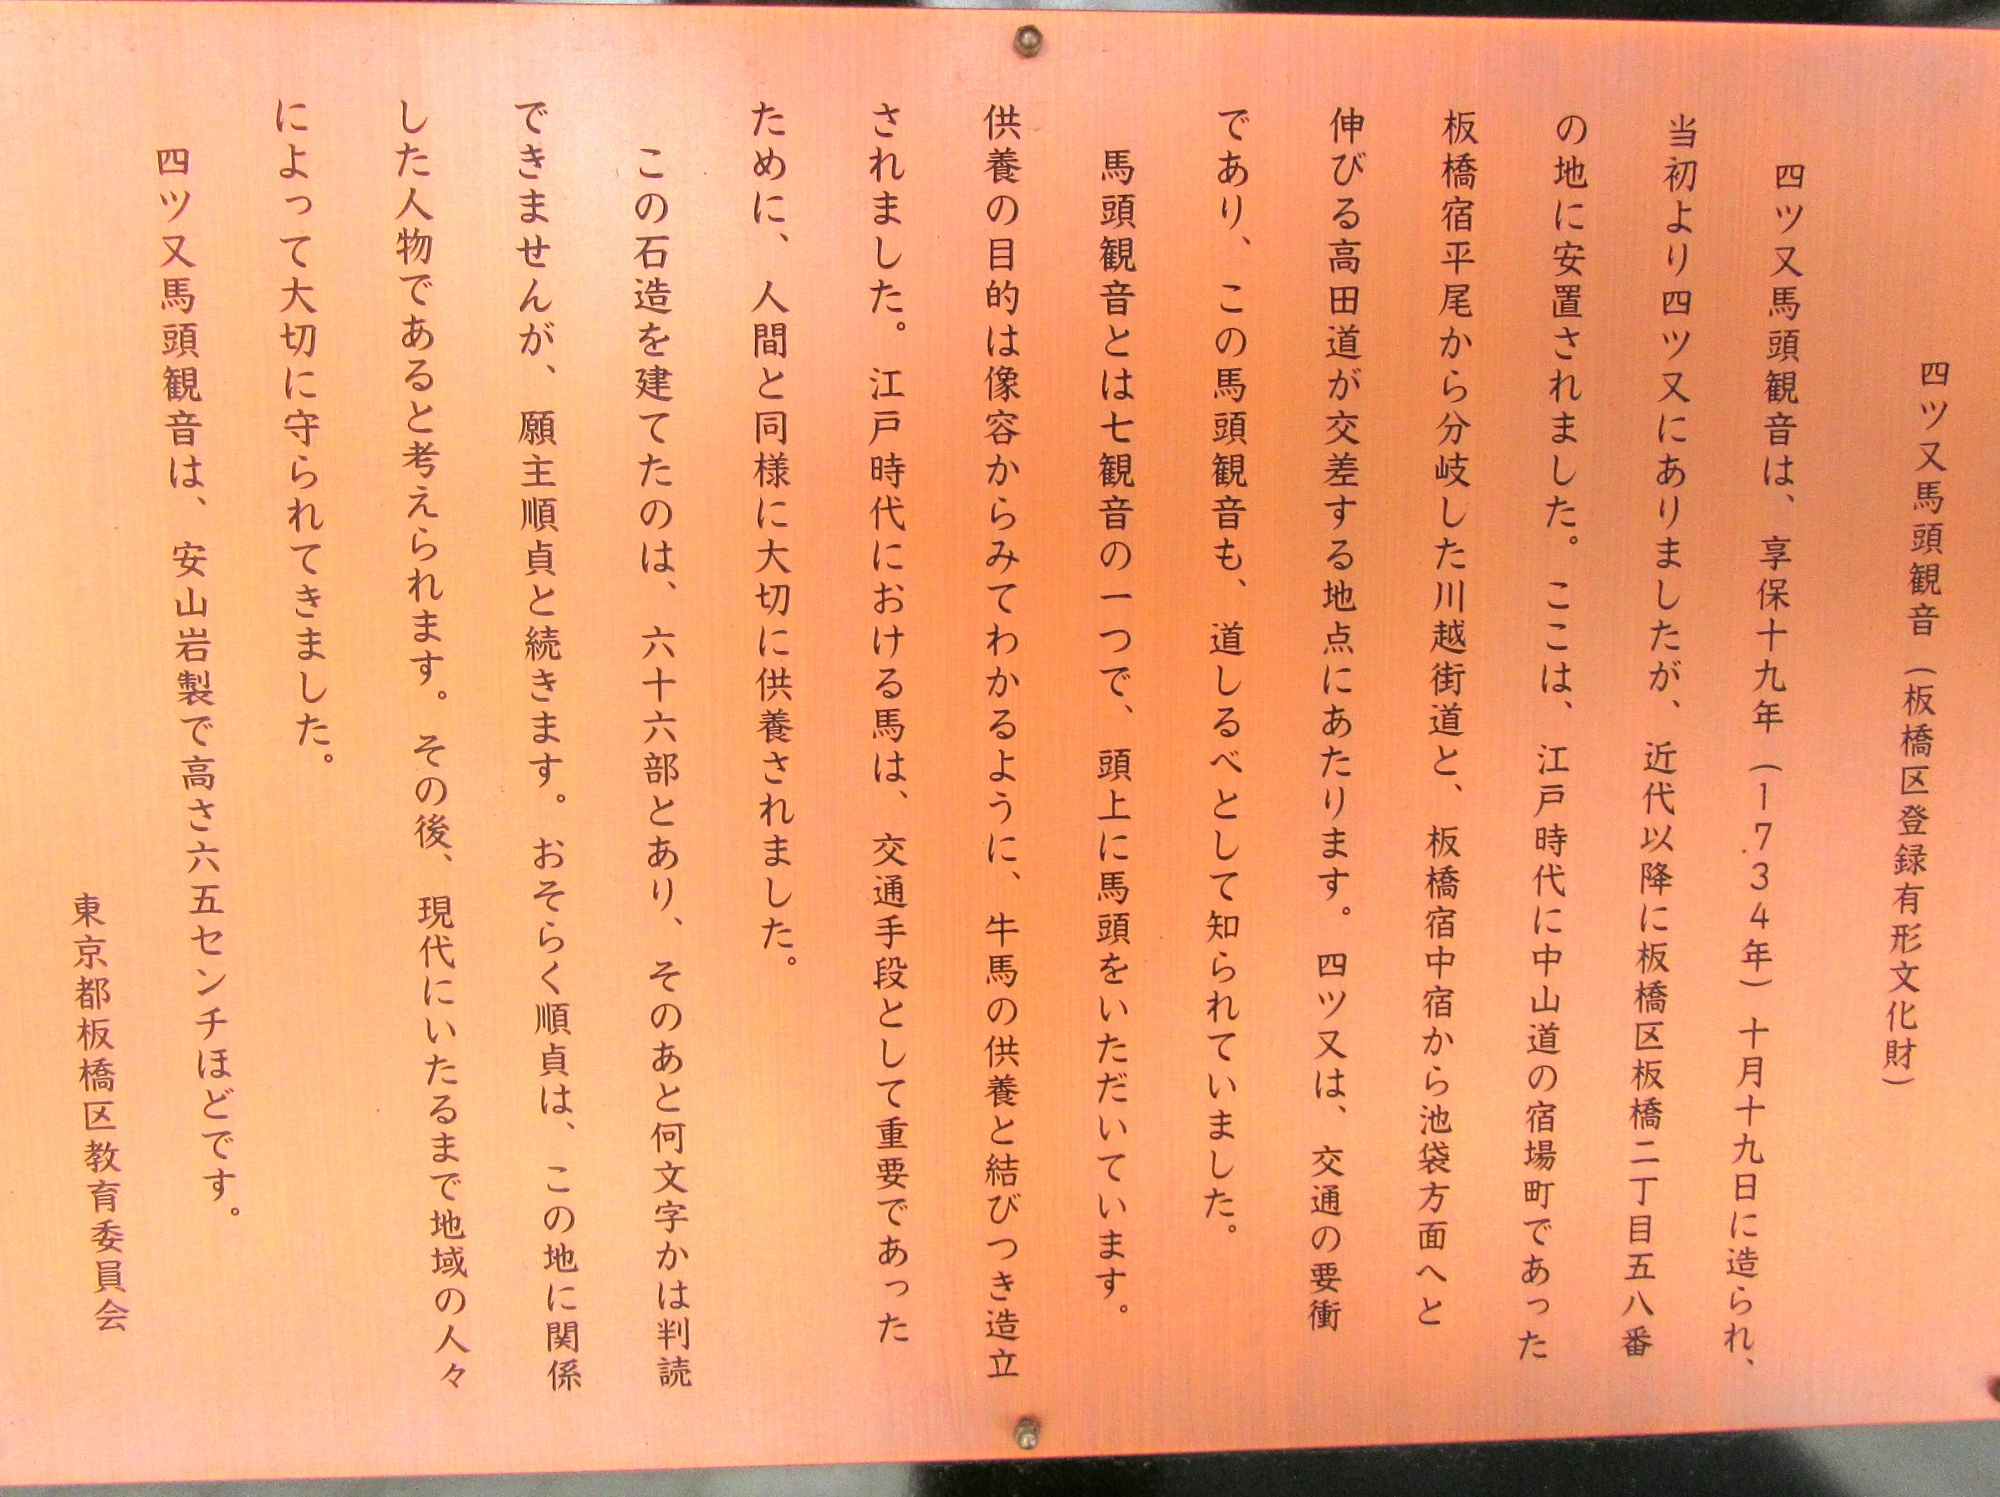 四ツ又馬頭観音（板橋区登録有形文化財）
四ツ又馬頭観音は、享保十九年（１７３４年）十月十九日に造られ、
当初より四ツ又にありましたが、近代以降に板橋区板橋二丁目五八番
の地に安置されました。ここは、江戸時代に中山道の宿場町であった
板橋宿平尾から分岐した川越街道と、板橋宿中宿から池袋方面へと
伸びる高田道が交差する地点にあたります。四ツ又は、交通の要衝
であり、この馬頭観音も、道しるべとして知られていました。
馬頭観音とは七観音の一つで、頭上に馬頭をいただいています。
供養の目的は像容からみてわかるように、牛馬の供養と結びつき造立
されました。江戸時代における馬は、交通手段として重要であった
ために、人間と同様に大切に供養されました。
この石造を建てたのは、六十六部とあり、そのあと何文字かは判読
できませんが、願主順貞と続きます。おそらく順貞は、この地に関係
した人物であると考えられます。その後、現代にいたるまで地域の人々
によって大切に守られてきました。
四ツ又馬頭観音は、安山岩製で高さ六五センチほどです。
東京都板橋区教育委員会